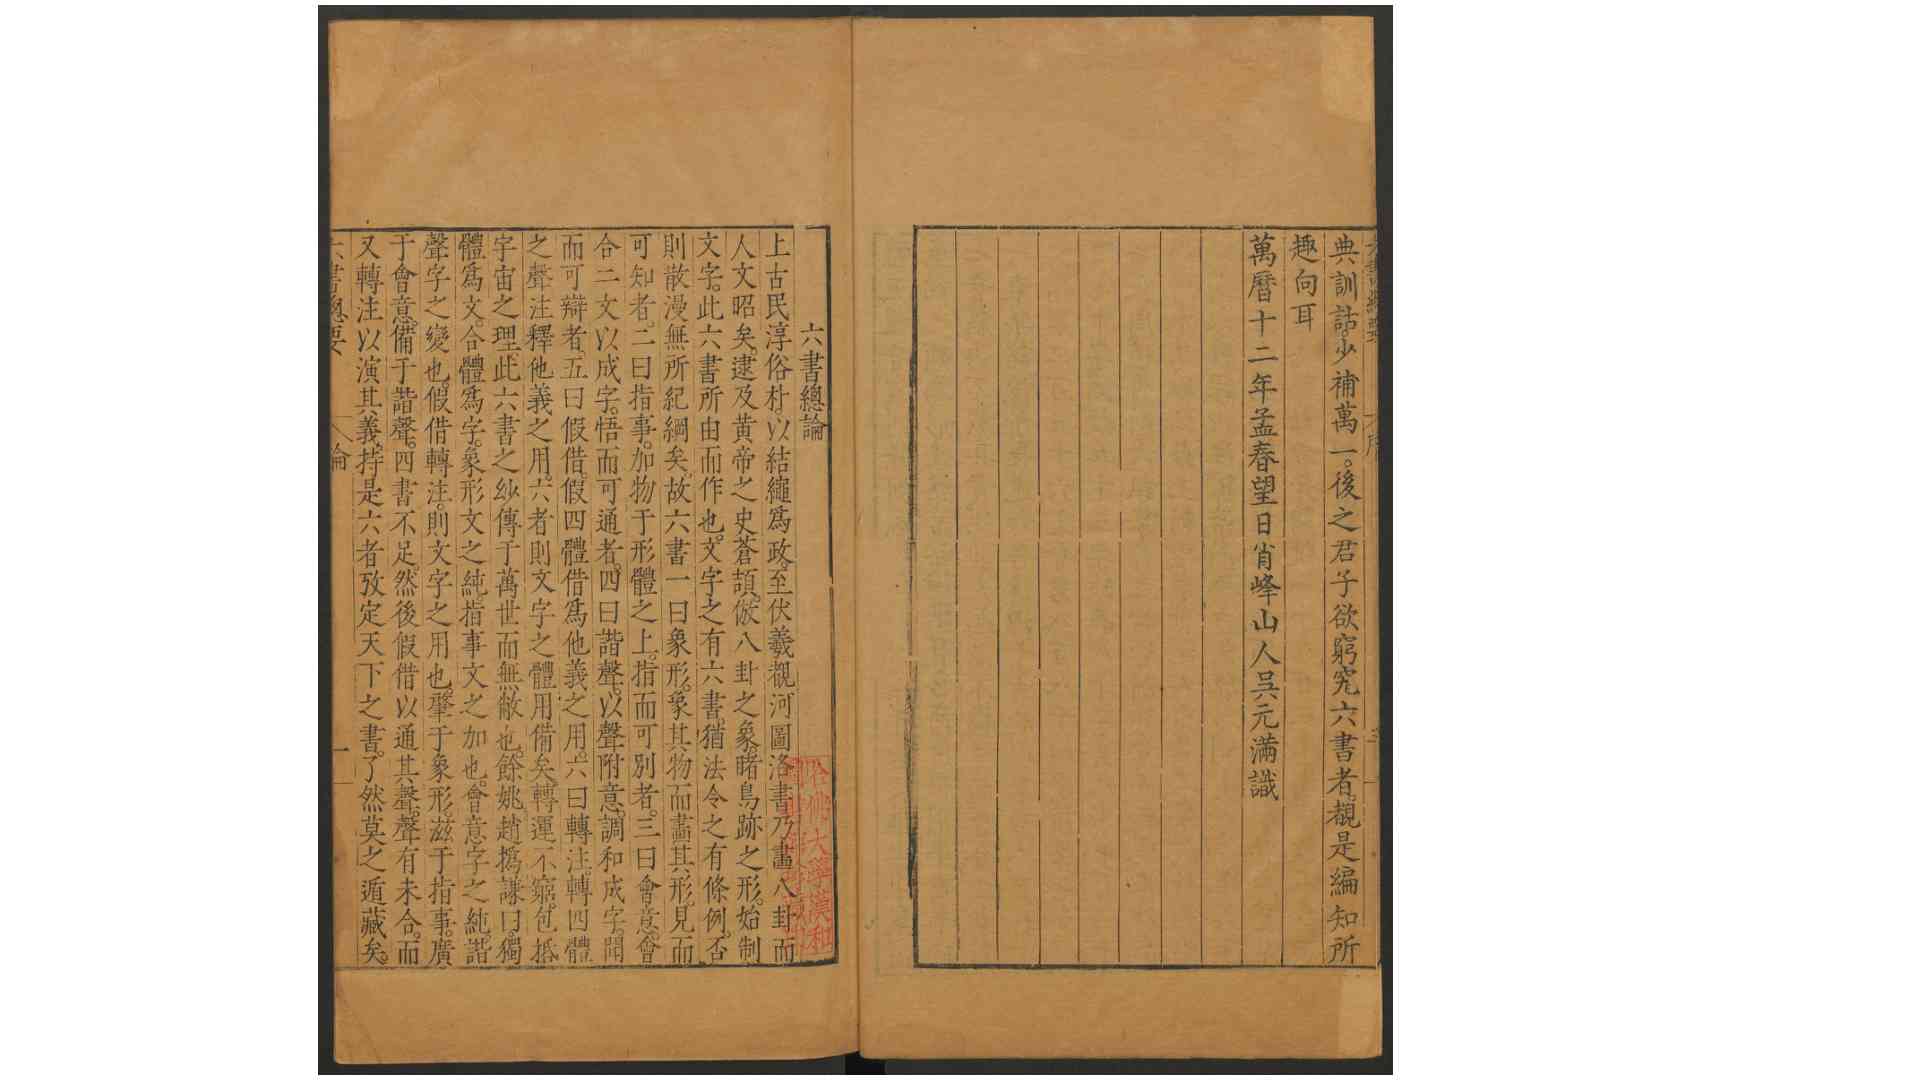 典訓詁。少補萬一。後之君子欲窮究六書者。觀是編知所
趣向耳
萬曆十二年孟春望日肖峰山人吳元滿識
六書總論
上古民淳俗朴。以結繩爲政。至伏羲觀河圖洛書乃畵八卦而
人文昭矣。逮及黄帝之史蒼頡。倣八卦之象。睹鳥跡之形。始制
文字。此六書所由而作也。文字之有六書。猶法令之有條例。否
則散漫無所紀綱矣。故六書一曰象形。象其物而畵其形。見而
可知者。二曰指事。加物于形體之上。指而可別者。三曰會意。會
合二文以成字。悟而可通者。四曰諧聲。以聲附意。調和成字。聞
而可辯者。五曰假借。假四體借爲他義之用。六曰轉注。轉四體
之聲注釋他義之用。六者則文字之體用備矣。轉運不窮。包括
宇宙之理。此六書之玅傳于萬世而無敝也。餘姚趙撝謙曰。獨
體爲文。合體爲字。象形文之純。指事文之加也。會意字之純。諧
聲字之變也。假借轉注。則文字之用也。肇于象形。滋于指事。廣
于會意。備于諧聲。四書不足。然後假借以通其聲。聲有未合。而
又轉注以演其義。持是六者攷定天下之書。了然莫之遁藏矣。
六書總要 論 一